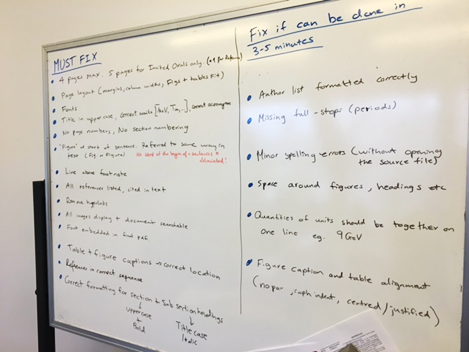 MUST FIX
4 pages max. 5 pages for Invited Orals only (+1 for Refs)
Page layout (margins, column widths, Figs + tables fit)
Fonts
Title in uppercase, correct units [keV, Tm, ..], correct acronyms
No page numbers, No section numbering
'Figure' @ start of sentence. Referred to same way in
text (Fig or Figure) No word at the begin of a sentence is
abbreviated!
Line above footnote
All references listed, cited in text
Remove hyperlinks
All images display + document searchable
Font embedded in final pdf.
Table + figure captions → correct location
References in correct sequence
Correct formatting for section + sub section headings
uppercase
bold
Title case
italic
Fix if can be done in
3-5 minutes
Author list formatted correctly
Missing full-stops (periods)
Minor spelling errors (without opening
the source file)
Space around figures, headings etc
Quantities of units should be together on
one line eg. 9GeV
Figure caption and table alignment
indent, centred/justified)